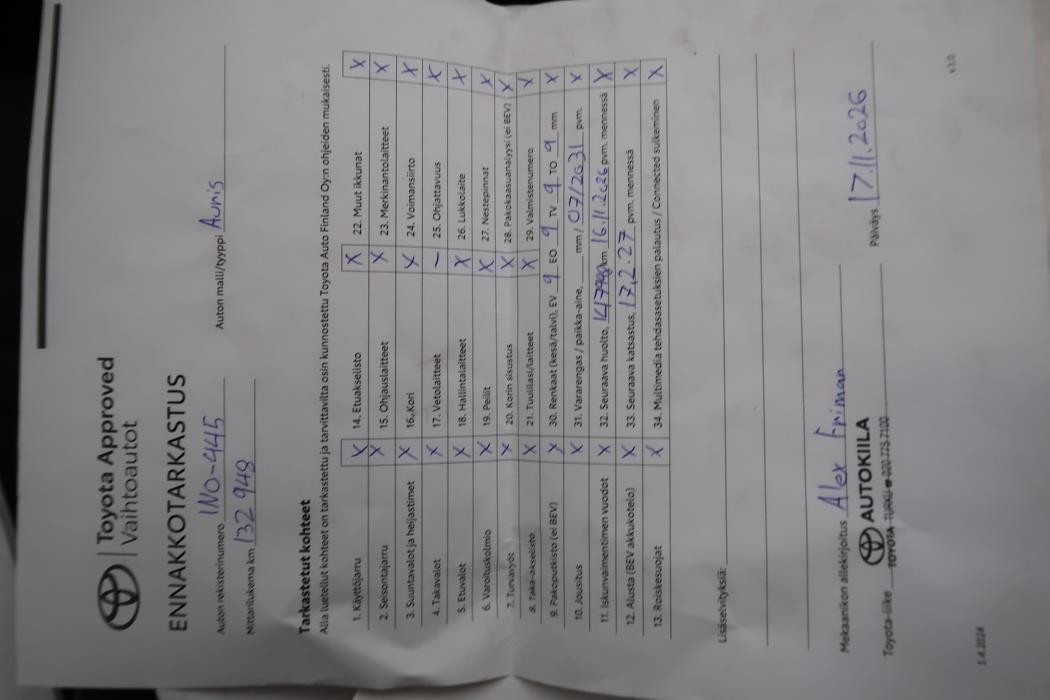 Toyota Approved
Vaihtoautot
ENNAKKOTARKASTUS
Auton rekisterinumero INO-445 Auton malli/tyyppi Auris
Mittarilukema km 132 948
Tarkastetut kohteet
Alla luetellut kohteet on tarkastettu ja tarvittavilta osin kunnostettu Toyota Auto Finland Oy:n ohjeiden mukaisesti.
1. Käyttöjarru X 14. Etuakselisto X 22. Muut ikkunat X
2. Seisontajarru X 15. Ohjauslaitteet X 23. Merkinantolaitteet X
3. Suuntavalot ja heijastimet X 16. Kori X 24. Voimansiirto X
4. Takavalot X 17. Vetolaitteet – 25. Ohjattavuus X
5. Etuvalot X 18. Hallintalaitteet X 26. Lukkolaite X
6. Varoituskolmio X 19. Peilit X 27. Nestepinnat X
7. Turvavyöt X 20. Korin sisustus X 28. Pakokaasuanalyysi (ei BEV) X
8. Taka-akselisto X 21. Tuulilasi/laitteet X 29. Valmistenumero X
9. Pakoputkisto (ei BEV) X 30. Renkaat (kesä/talvi), EV 9 EO 9 TV 9 TO 9 mm X
10. Jousitus X 31. Vararengas / paikka-aine, ___ mm / 07/2031 pvm. X
11. Iskunvaimentimen vuodot X 32. Seuraava huolto, km 16.11.2026 pvm. mennessä X
12. Alusta (BEV akkukotelo) X 33. Seuraava katsastus, 17.2.27 pvm. mennessä X
13. Roiskesuojat X 34. Multimedia tehdasasetuksien palautus / Connected sulkeminen X
Lisäselvityksiä:
Mekaanikon allekirjoitus Alex Friman Päiväys 17.11.2026
AUTOKIILA
Toyota-liike TOYOTA TURKU ☎ 020 775 7100
1.4.2024 v1.0